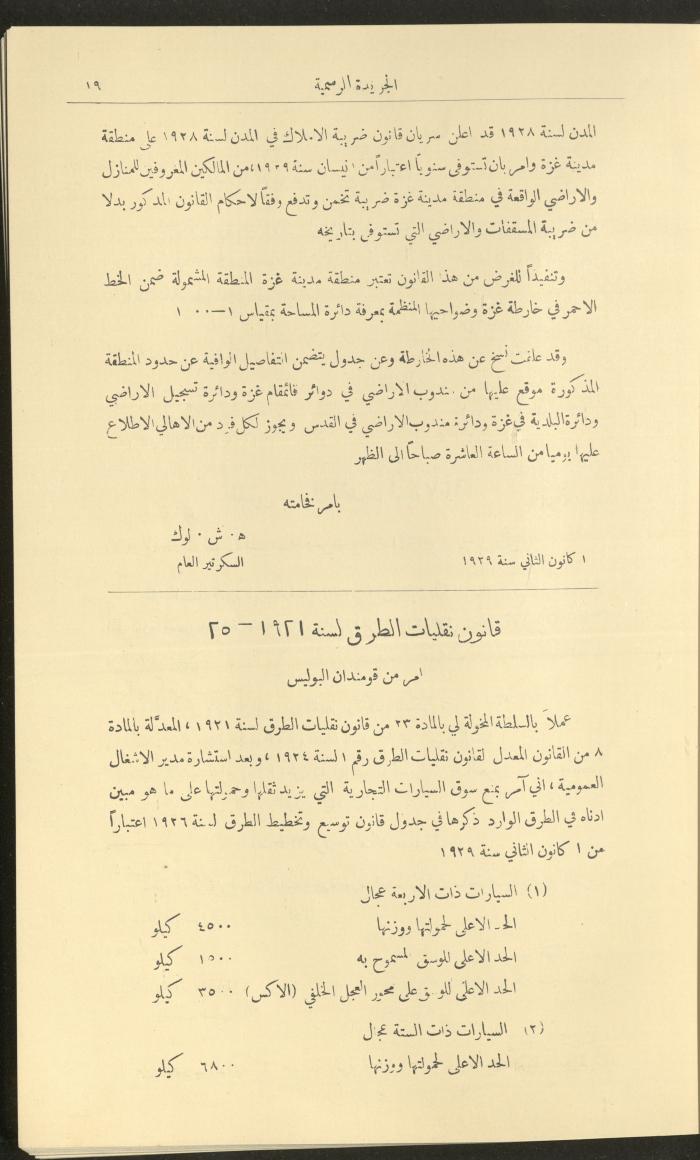 الجريدة الرسمية ١٩
المدن لسنة ١٩٢٨ قد اعلن سريان قانون ضريبة الاملاك في المدن لسنة ١٩٢٨ على منطقة
مدينة غزة وامر بان تستوفى سنوياً اعتباراً من ١ نيسان سنة ١٩٢٩، من المالكين المعروفين للمنازل
والاراضي الواقعة في منطقة مدينة غزة ضريبة تخمن وتدفع وفقاً لاحكام القانون المذكور بدلا
من ضريبة المسقفات والاراضي التي تستوفى بتاريخه
وتنفيذاً للغرض من هذا القانون تعتبر منطقة مدينة غزة المنطقة المشمولة ضمن الخط
الاحمر في خارطة غزة وضواحيها المنظمة بمعرفة دائرة المساحة بمقياس
وقد علقت نسخ عن هذه الخارطة وعن جدول يتضمن التفاصيل الوافية عن حدود المنطقة
المذكورة موقع عليها من مندوب الاراضي في دوائر قائمقام غزة ودائرة تسجيل الاراضي
ودائرة البلدية في غزة ودائرة مندوب الاراضي في القدس ويجوز لكل فرد من الاهالي الاطلاع
عليها يوميا من الساعة العاشرة صباحاً الى الظهر
بامر فخامته
ه٠ ش٠ لوك
١ كانون الثاني سنة ١٩٢٩ السكرتير العام
قانون نقليات الطرق لسنة ١٩٢١ – ٢٥
امر من قومندان البوليس
عملاً بالسلطة المخولة لي بالمادة ٢٣ من قانون نقليات الطرق لسنة ١٩٢١، المعدَّلة بالمادة
٨ من القانون المعدل لقانون نقليات الطرق رقم ١ لسنة ١٩٢٤، وبعد استشارة مدير الاشغال
العمومية، اني آمر بمنع سوق السيارات التجارية التي يزيد ثقلها وحمولتها على ما هو مبين
ادناه في الطرق الوارد ذكرها في جدول قانون توسيع وتخطيط الطرق لسنة ١٩٢٦ اعتباراً
من ١ كانون الثاني سنة ١٩٢٩
(١) السيارات ذات الاربعة عجال
الحد الاعلى لحمولتها ووزنها ٤٥٠٠ كيلو
الحد الاعلى للوسق المسموح به ١٥٠٠ كيلو
الحد الاعلى للوسق على محور العجل الخلفي (الاكس) ٣٥٠٠ كيلو
(٢) السيارات ذات الستة عجال
الحد الاعلى لحمولتها ووزنها ٦٨٠٠ كيلو